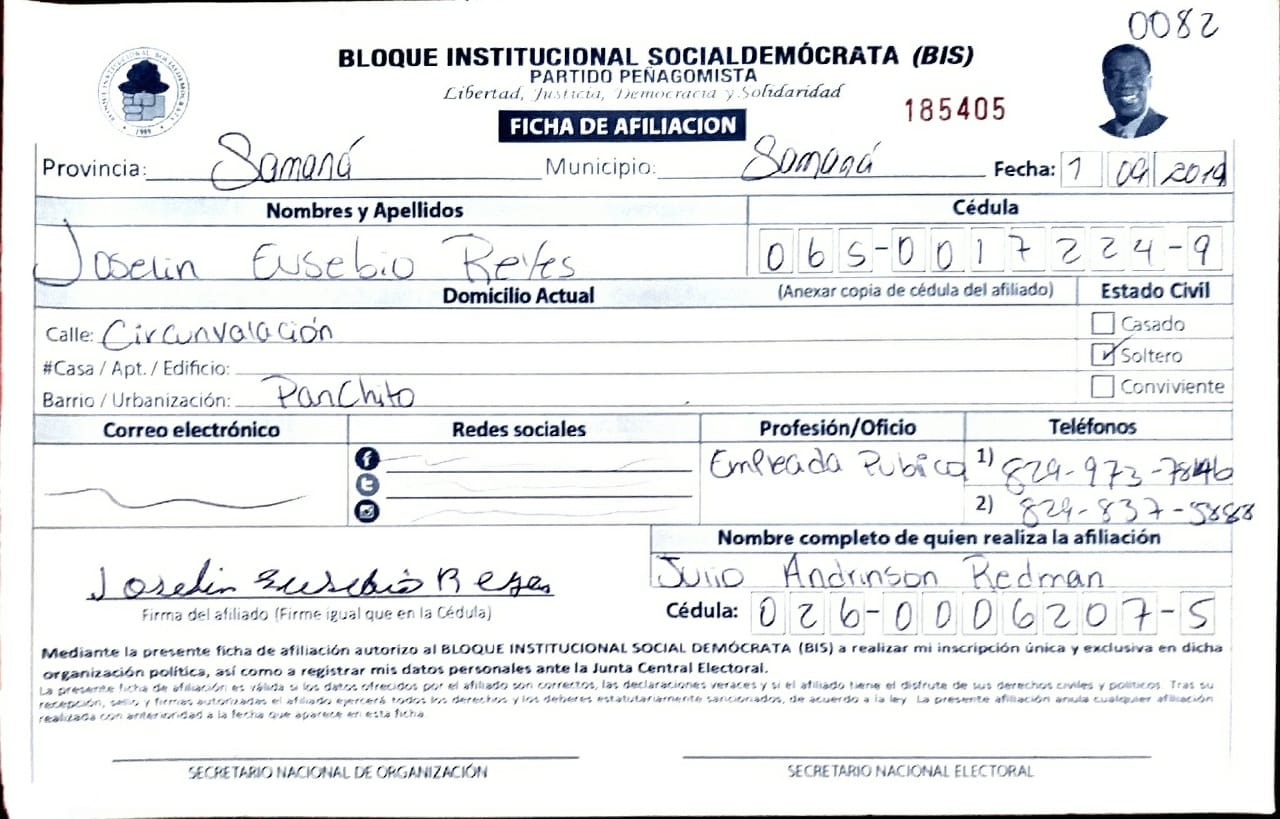 0082
BLOQUE INSTITUCIONAL SOCIALDEMÓCRATA (BIS)
PARTIDO PEÑAGOMISTA
Libertad, Justicia, Democracia y Solidaridad
185405
FICHA DE AFILIACION
Provincia: Samaná Municipio: Samaná Fecha: 1 09 2019
Nombres y Apellidos Cédula
Joselin Eusebio Reyes 065-0017224-9
Domicilio Actual (Anexar copia de cédula del afiliado) Estado Civil
Calle: Circunvalación Casado
#Casa / Apt. / Edificio: Soltero
Barrio / Urbanización: Panchito Conviviente
Correo electrónico Redes sociales Profesión/Oficio Teléfonos
Empleada Pubica 1) 829-973-7846
2) 829-837-5888
Nombre completo de quien realiza la afiliación
Joselin Eusebio Reyes Julio Andrinson Redman
Firma del afiliado (Firme igual que en la Cédula) Cédula: 026-0006207-5
Mediante la presente ficha de afiliación autorizo al BLOQUE INSTITUCIONAL SOCIAL DEMÓCRATA (BIS) a realizar mi inscripción única y exclusiva en dicha
organización política, así como a registrar mis datos personales ante la Junta Central Electoral.
La presente ficha de afiliación es válida si los datos ofrecidos por el afiliado son correctos, las declaraciones veraces y si el afiliado tiene el disfrute de sus derechos civiles y políticos. Tras su
recepción, sello y firmas autorizadas el afiliado ejercerá todos los derechos y los deberes estatutariamente sancionados, de acuerdo a la ley. La presente afiliación anula cualquier afiliación
realizada con anterioridad a la fecha que aparece en esta ficha.
SECRETARIO NACIONAL DE ORGANIZACIÓN SECRETARIO NACIONAL ELECTORAL